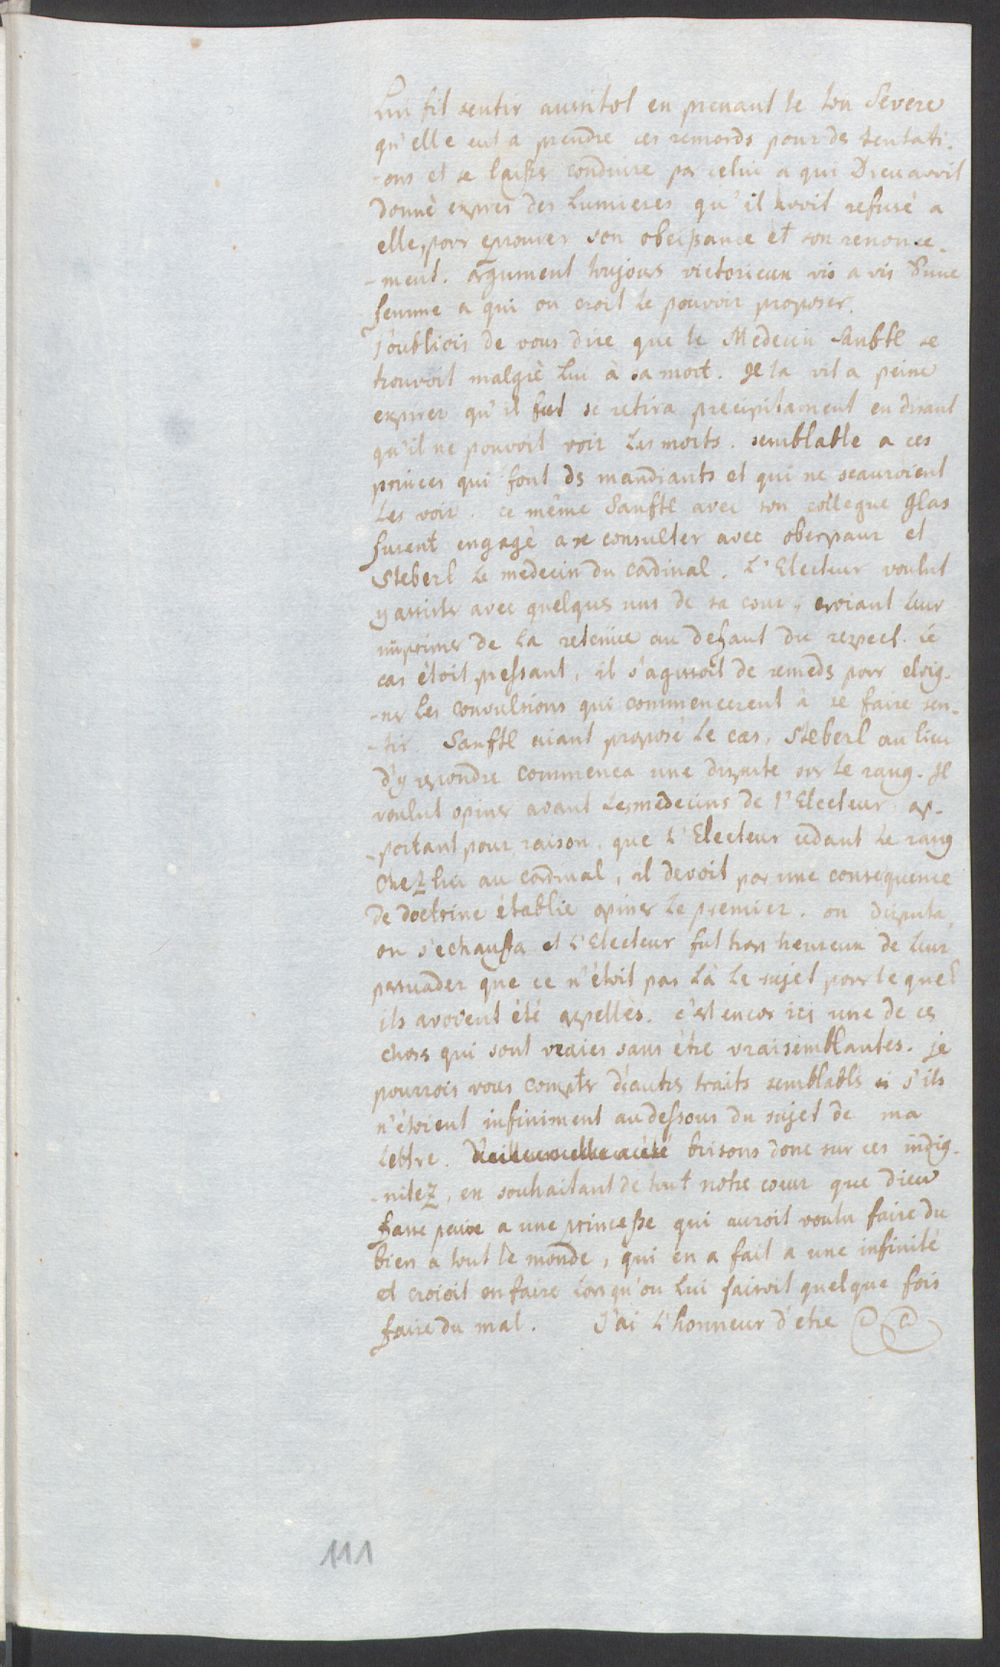 Lui fit sentir aussitot en prenant le ton Severe
qu'elle eut a prendre ces remords pour des tentati-
-ons et se laisser conduire par celui a qui Dieu avoit
donnè expres des Lumieres qu'il avoit refusé a
elle, pour eprouver son obeissance et son renonce-
-ment. argument toujours victorieux vis a vis d'une
femme a qui on croit le pouvoir proposer.
j'oubliois de vous dire que le Medecin Sanftl se
trouvoit malgrè lui à sa mort. Il la vit a peine
expirer qu'il se retira precipitament en disant
qu'il ne pouvoit voir Les morts. semblable a ces
princes qui font ds mandiants et qui ne scauroient
Les voir. ce même Sanftl avec son collegue Glas
furent engagè a se consulter avec oberpaur et
Steberl Le medecin du Cardinal. L'Electeur voulut
y assister avec quelques uns de sa cour, croiant leur
imprimer de la retenue au defaut du respect. Le
cas étoit pressant, il s'agissoit de remeds pour eloig-
-ner les convulsions qui commencerent à se faire sen-
-tir. Sanftl aiant proposé le cas, Steberl au lieu
d'y repondre commenca une dispute sur le rang. Il
voulut opiner avant Les medecins de l'Electeur ap-
-portant pour raison, que L'Electeur cedant le rang
Chez lui au cardinal, il devoit par une consequence
de doctrine établie opiner le premier. on disputa,
on s'echauffa et L'Electeur fut trop heureux de leur
persuader que ce n'étoit pas là le sujet pour lequel
ils avoient été appellès. c'est encor ici une de ces
choses qui sont vraies sans être vraisemblantes. je
pourrois vous compter d'autres traits semblables s'ils
n'étoient infiniment au dessous du sujet de ma
Lettre. brisons donc sur ces indig-
-nitez, en souhaitant de tout notre coeur que Dieu
fasse paix a une princesse qui auroit voulu faire du
bien a tout le monde, qui en a fait a une infinité
et croioit en faire Lorsqu'on Lui faisoit quelque fois
faire du mal. J'ai L'honneur d'etre
111